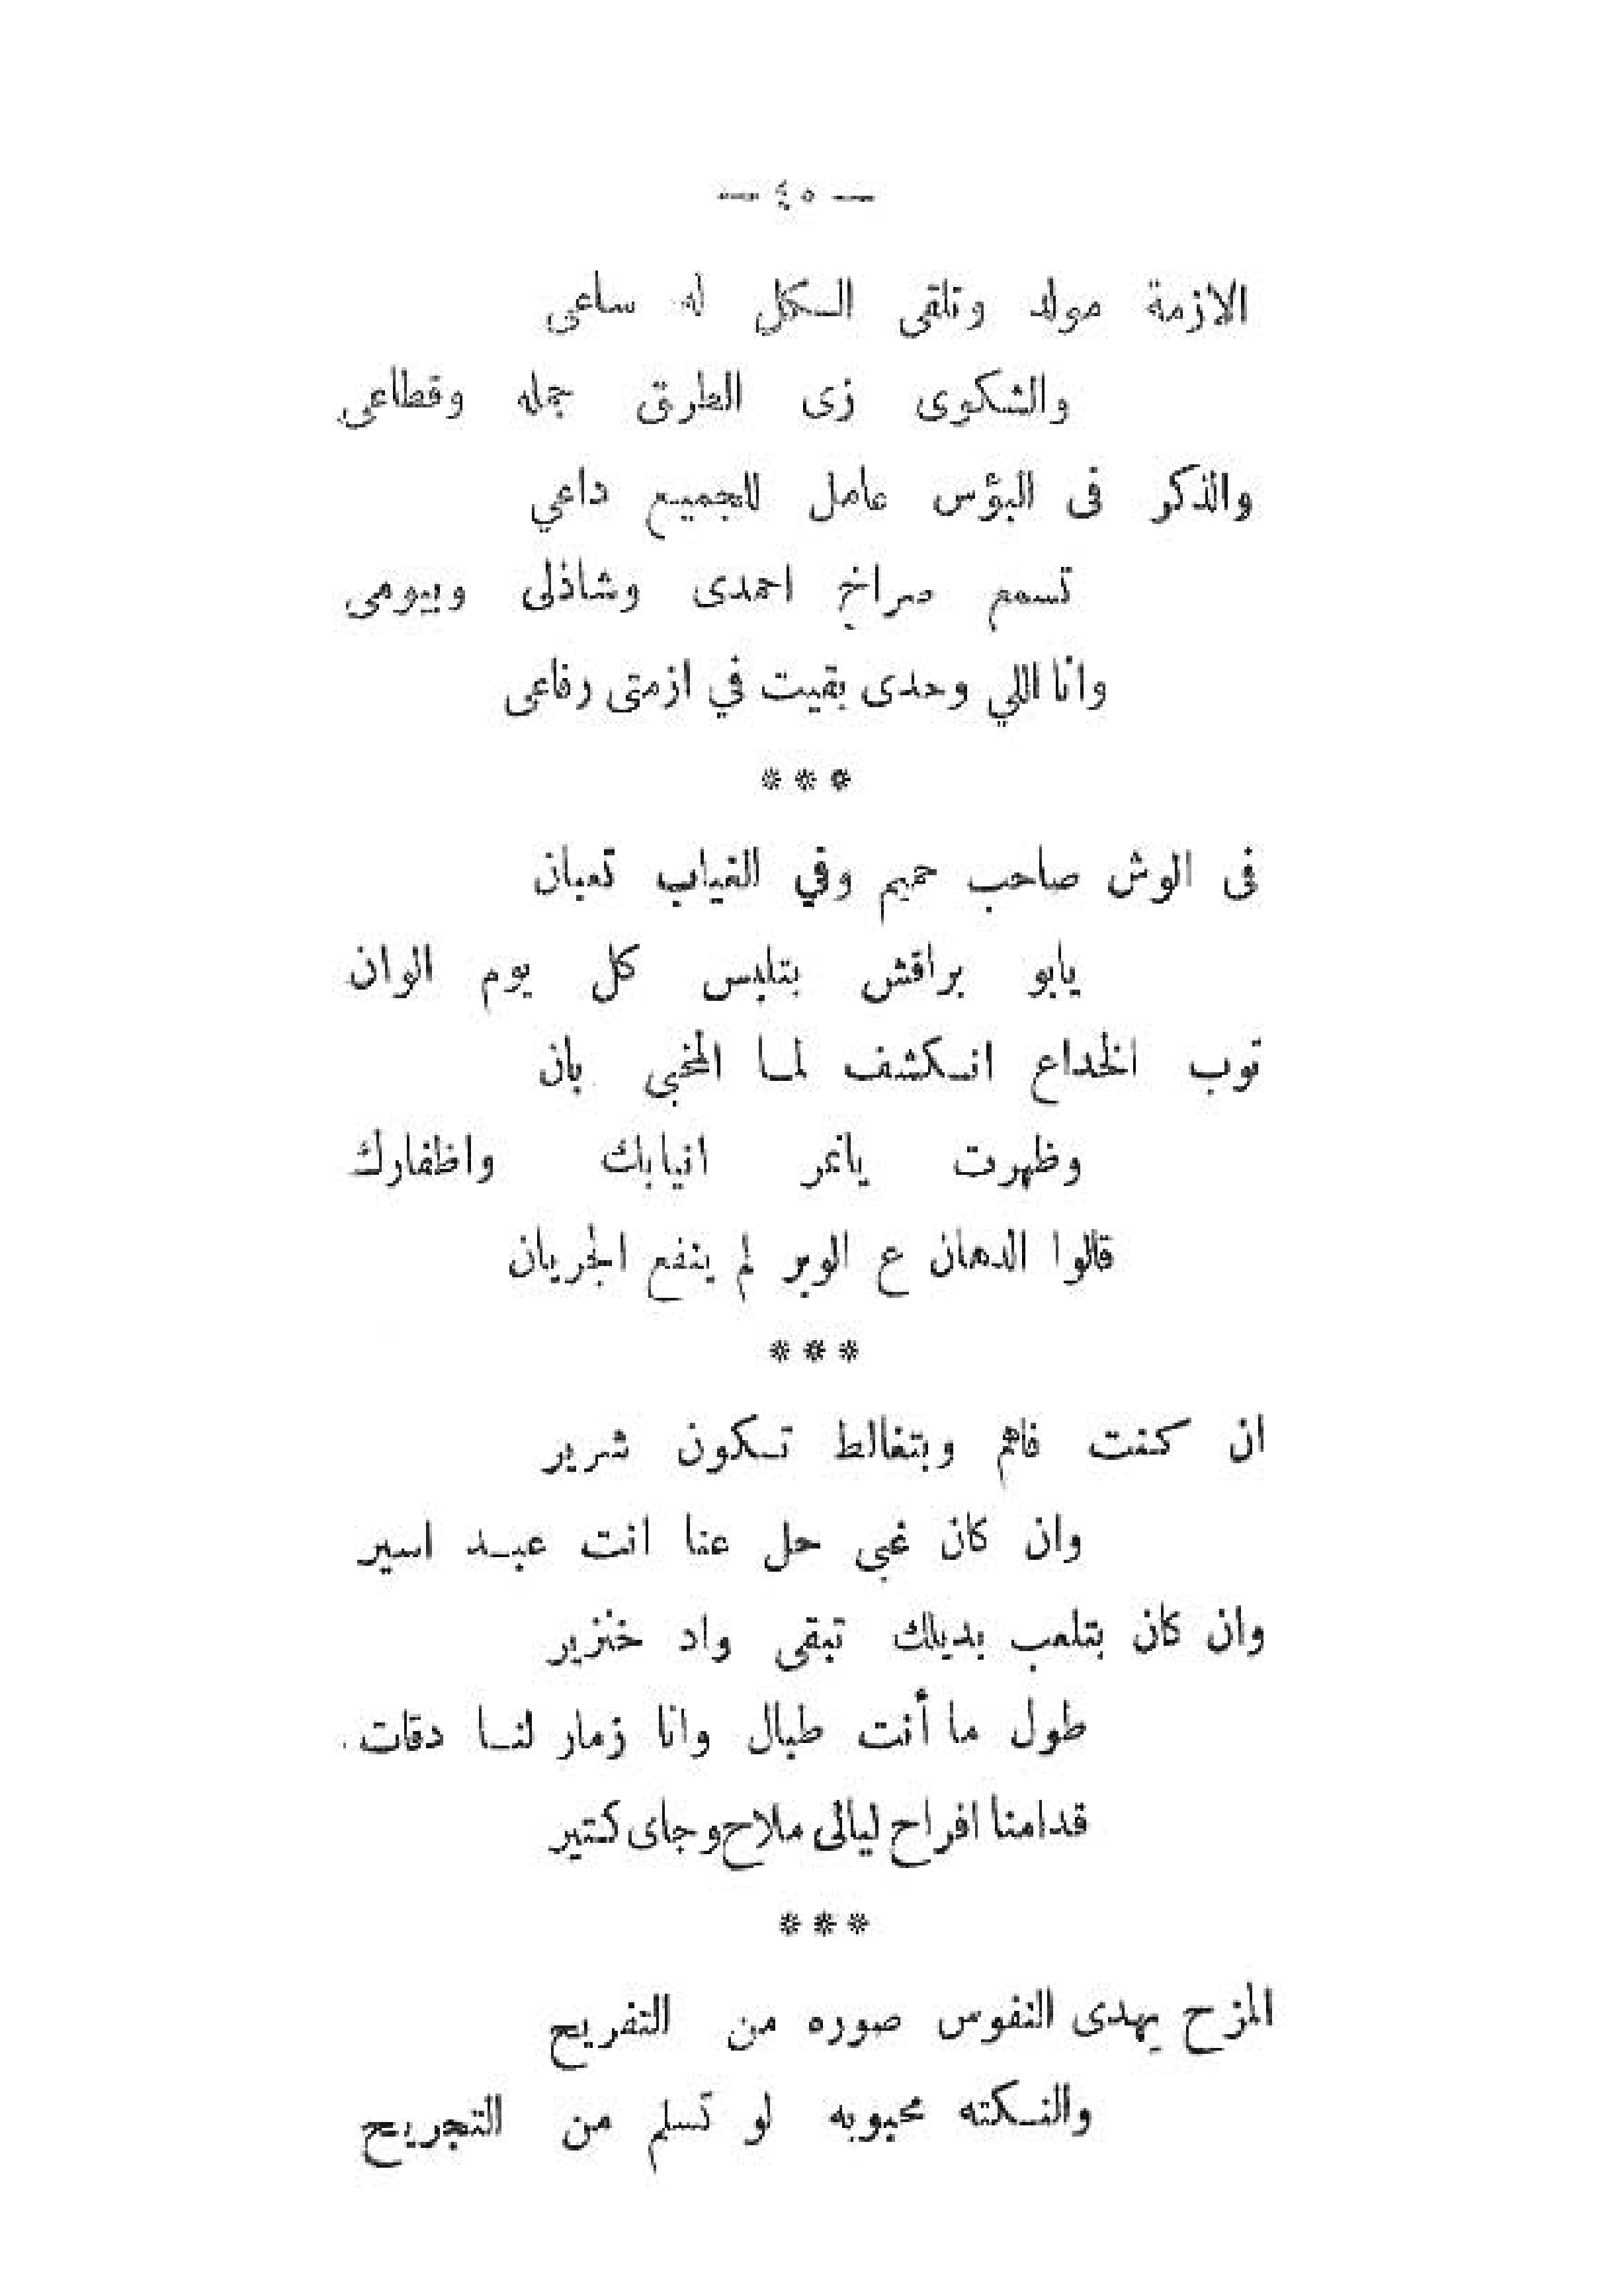 — ٤٥ —
الازمة مولد وتلقى الكل له ساعى
والشكوى زى الطرق جمله وقطاعى
والذكر فى البؤس عامل للجميع داعي
تسمع صراخ احمدى وشاذلى وبيومى
وانا اللي وحدى بقيت في ازمتى رفاعى
***
فى الوش صاحب حميم وفي الغياب تعبان
يابو براقش بتلبس كل يوم الوان
توب الخداع انكشف لما المخبى بان
وظهرت يانمر انيابك واظفارك
قالوا الدهان ع الوبر لم ينفع الجربان
***
ان كنت فاهم وبتغالط تكون شرير
وان كان غبى حل عنا انت عبد اسير
وان كان بتلعب بديلك تبقى واد خنزير
طول ما أنت طبال وانا زمار لنا دقات
قدامنا افراح ليالى ملاح وجاى كتير
***
المزح يهدى النفوس صوره من التفريح
والنكته محبوبه لو تسلم من التجريح